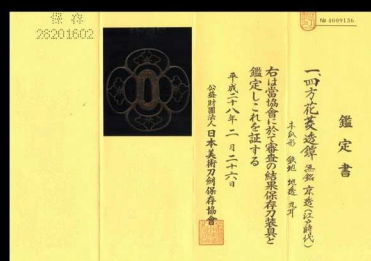 № 4009136
鑑定書
一、四方花菱透鐔 無銘 京透(江戸時代)
木瓜形 鉄地 地透 丸耳
右は當協會に於て審査の結果保存刀装具と
鑑定しこれを証する
平成二十八年二月二十六日
公益財團法人日本美術刀劍保存協會
保存
28201602